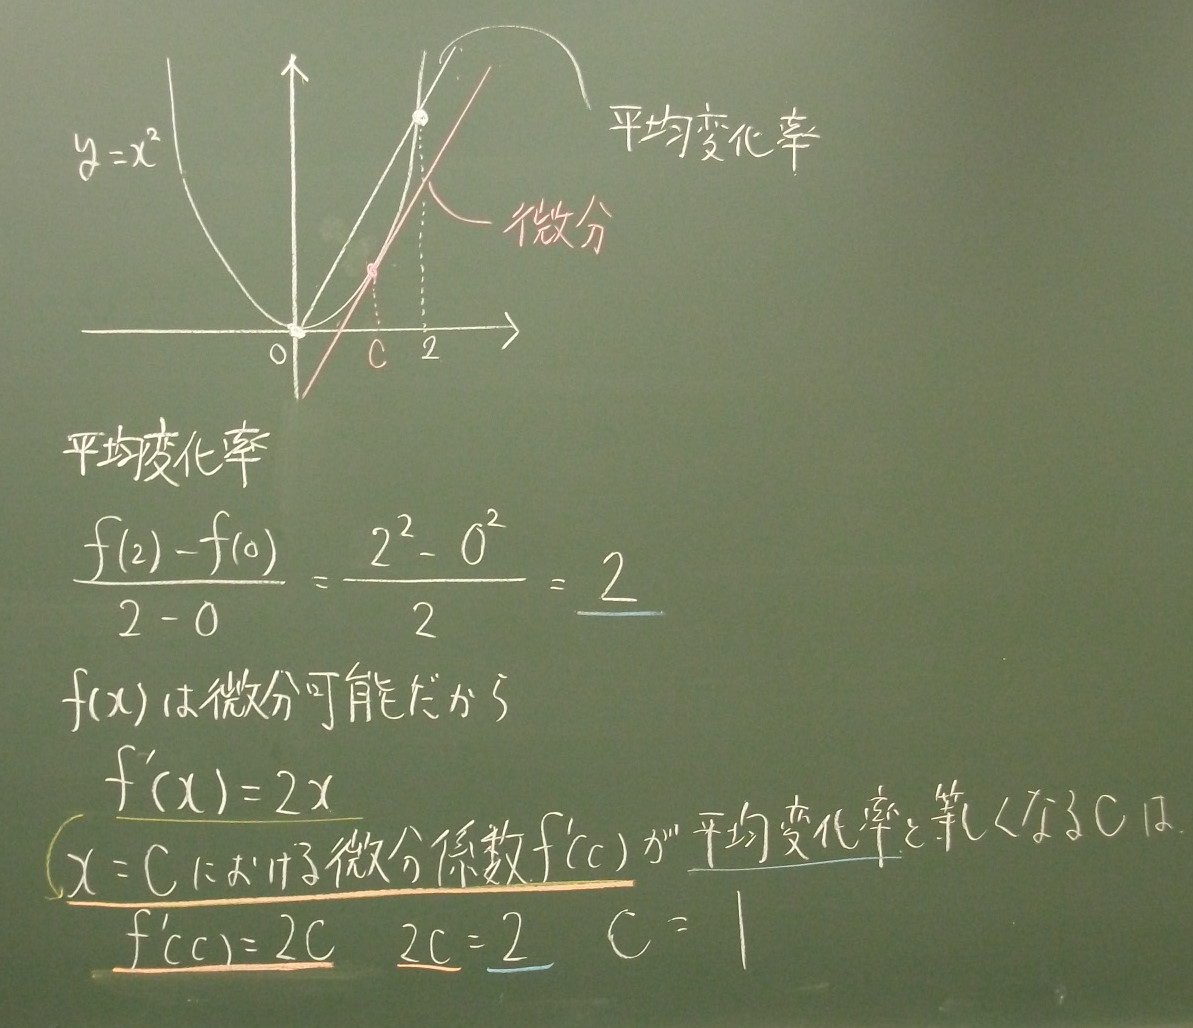 平均変化率
y=x²
微分
0 C 2
平均変化率
f(2)-f(0) / 2-0 = 2²-0² / 2 = 2
f(x)は微分可能だから
f'(x)=2x
x=Cにおける微分係数f'(c)が平均変化率と等しくなるCは
f'(c)=2C 2C=2 C=1